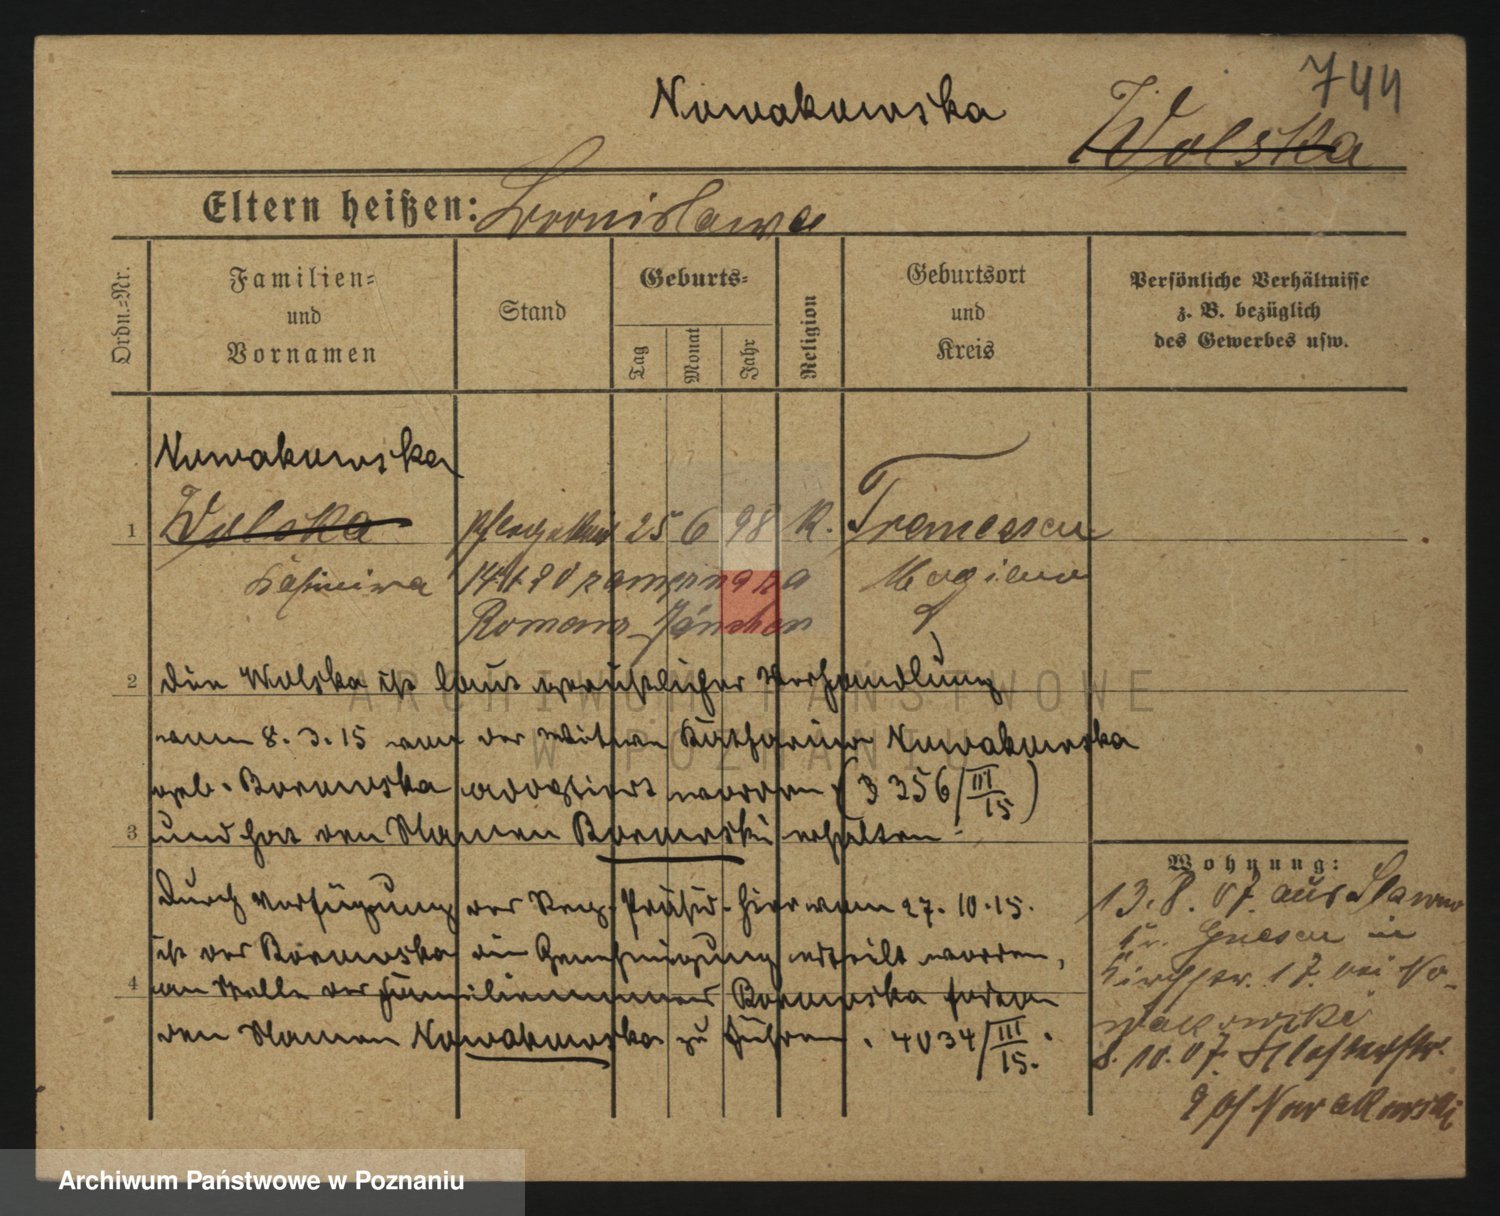 744
Nowakowska
Wolska
Eltern heißen: Bronislawa
Ordn.=Nr.
Familien=
und
Vornamen
Stand
Geburts=
Tag
Monat
Jahr
Religion
Geburtsort
und
Kreis
Persönliche Verhältnisse
z. B. bezüglich
des Gewerbes usw.
Nowakowska
1 Wolska Pflegekind 25 6 98 K.
Kasimira Mogilno
Roman
2 die Wolska ist laut gerichtlicher Verhandlung
vom 8.3.15 von der Witwe Katharina Nowakowska
geb. Borowska adoptiert worden (3356/III/15)
3 und hat den Namen Borowski erhalten.
Durch Verfügung des Reg. Präsid. hier vom 27.10.15.
ist der Borowska die Genehmigung erteilt worden,
4 an Stelle des Familiennamens Borowska fortan
den Namen Nowakowska zu führen. 4034/III/15.
Wohnung:
13.8.07. aus Slawno
Kr. Gnesen in
Kirchstr. 17. bei No-
wakowski
8.10.07. Klosterstr.
2 Nowakowski
ARCHIWUM PAŃSTWOWE
W POZNANIU
Archiwum Państwowe w Poznaniu